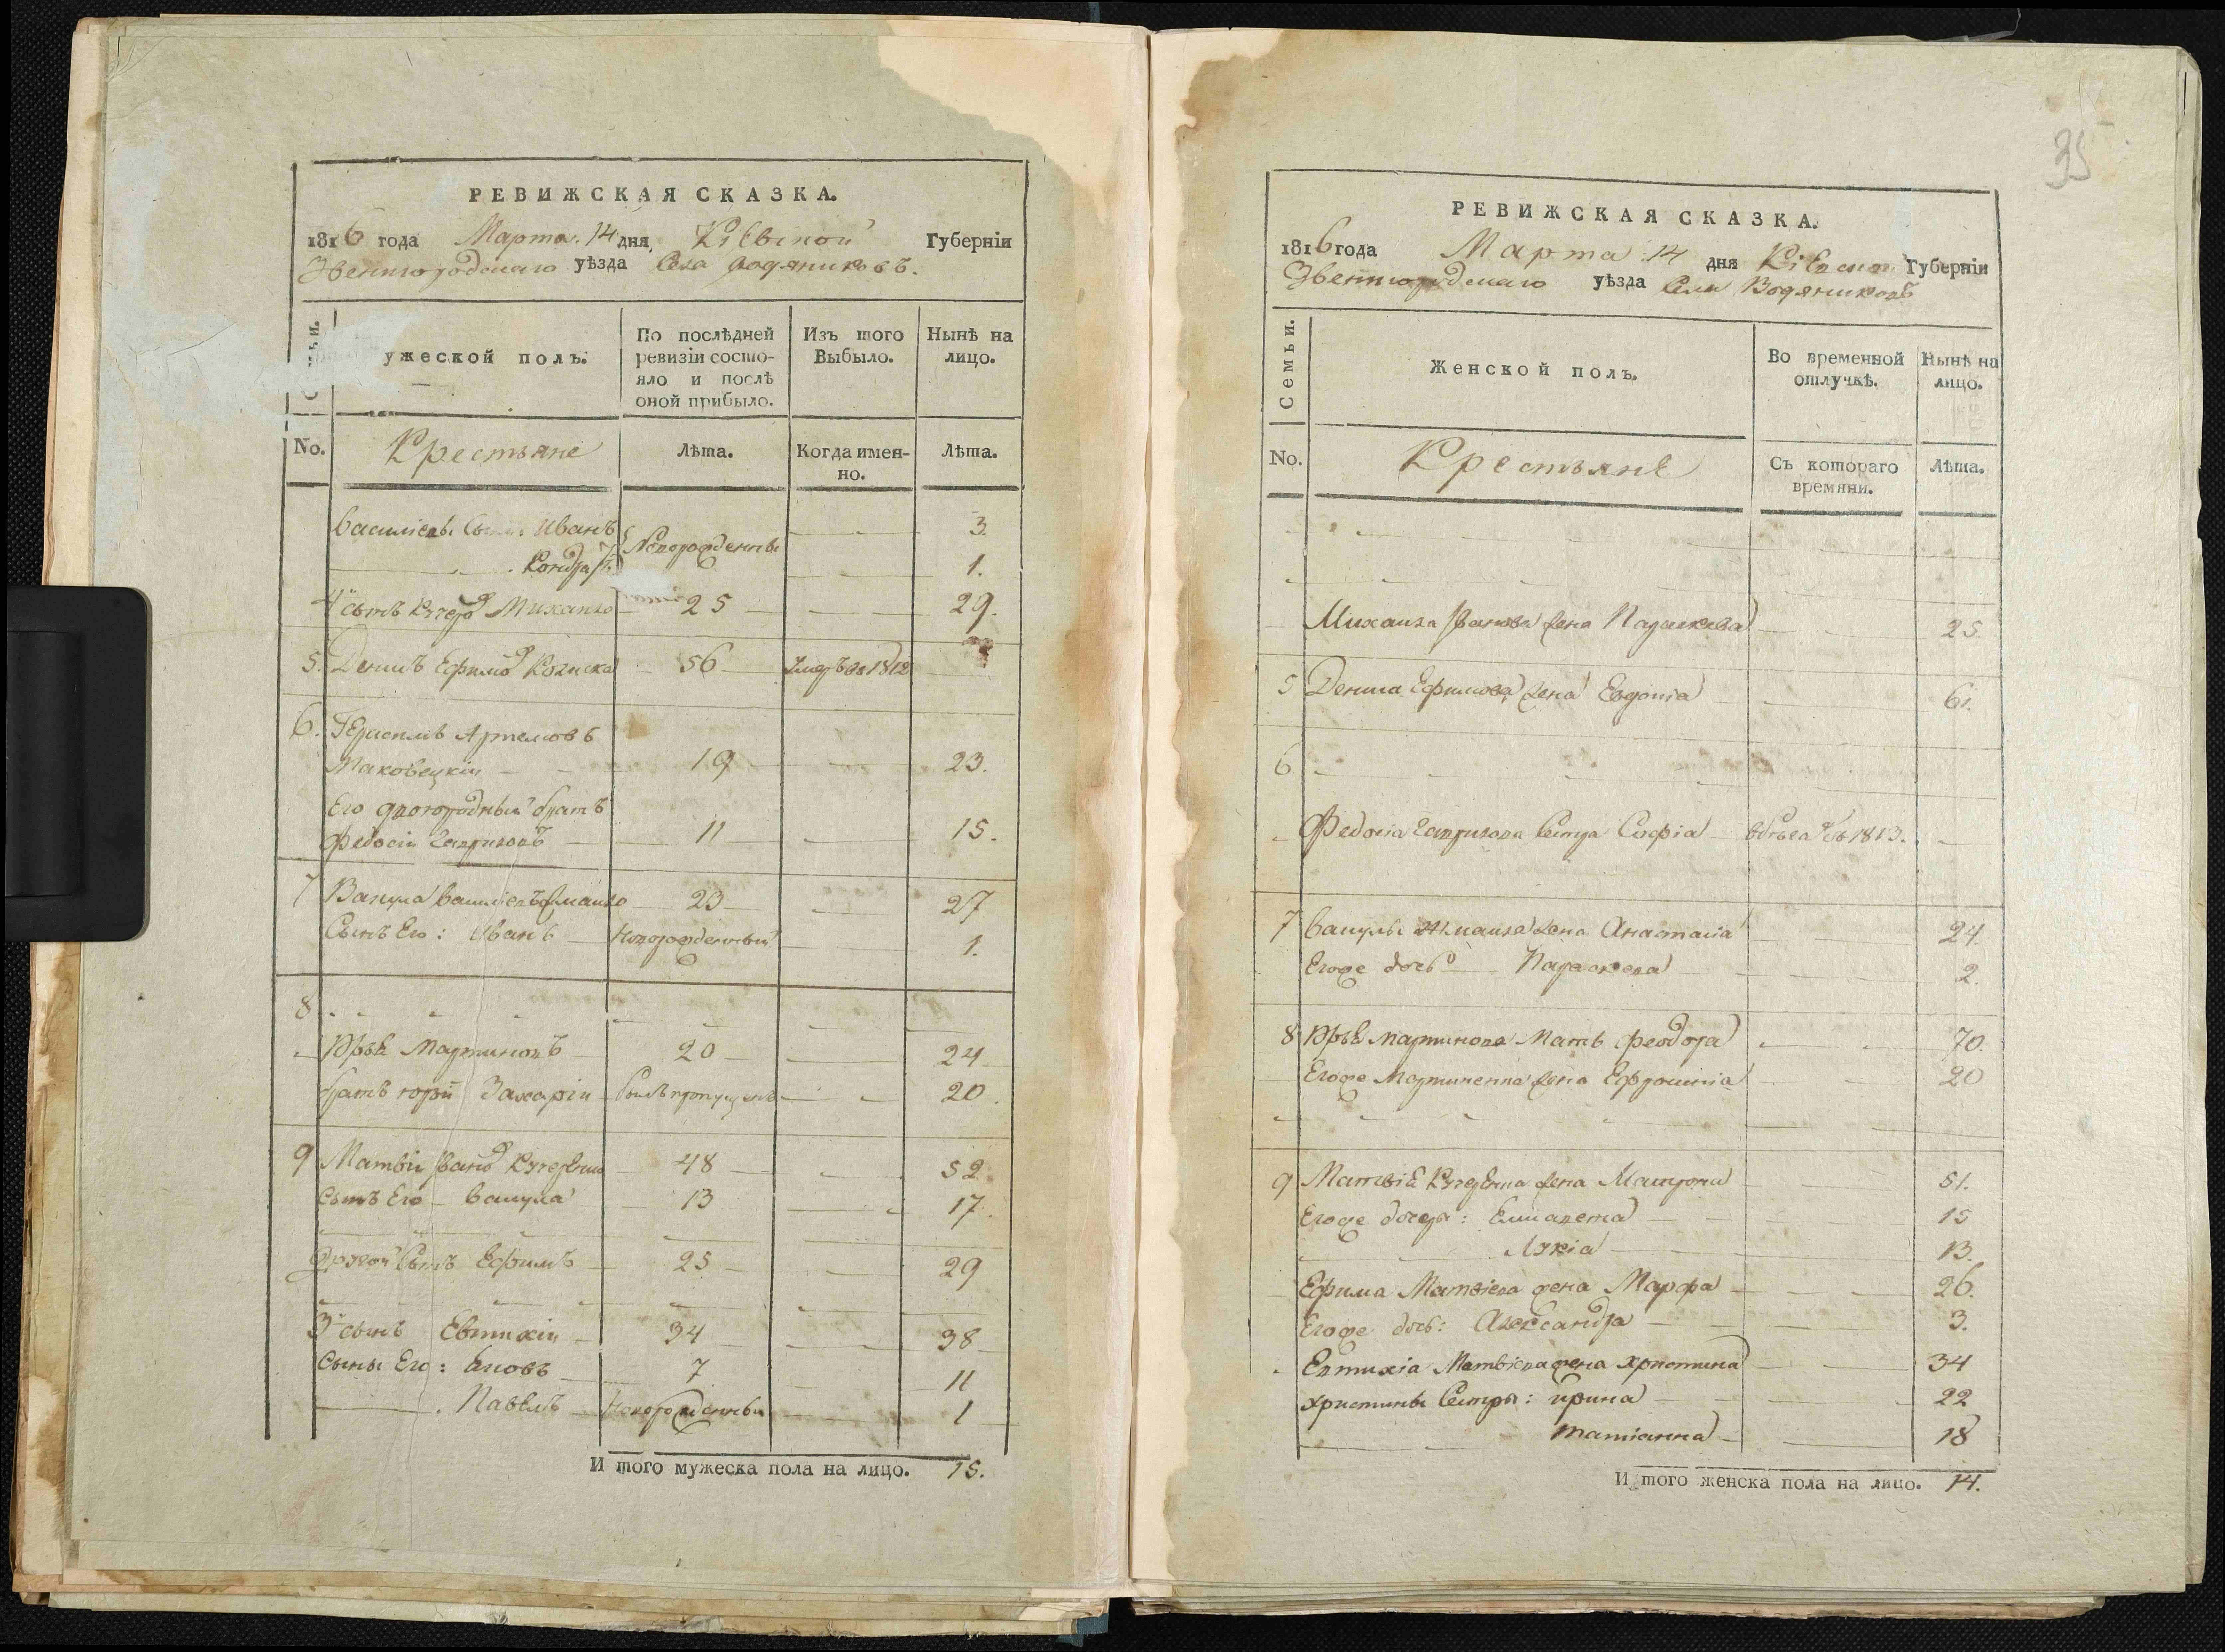 РЕВИЖСКАЯ СКАЗКА.
1816 года Марта 14 дня Кіевской Губерніи
Звенигородскаго уѣзда Села Водяниковъ.
ужеской полъ.
По послѣдней ревизіи состояло и послѣ оной прибыло.
Изъ того Выбыло.
Нынѣ на лицо.
No. Крестьяне Лѣта. Когда именно. Лѣта.
Василіевы Сыны: Иванъ Новорожденны 3.
Кондра 1.
4й сынъ Михайло 25 29.
5. Денисъ Ефимов 56 Умеръ въ 1812
6. Герасимъ Артемовъ
Маковецкіи 19 23.
Его двоюродный братъ
Федосіи Гавриловъ 11 15.
7 Вакула 23 27
Сынъ Его: Иванъ Новорожденный 1.
8
Юрѣй Мартиновъ 20 24
братъ Юрія Захаріи Былъ пропущенъ 20.
9 Матвіи Иванов 48 52
Сынъ Его Вакула 13 17.
Другой Сынъ Ефимъ 25 29
3й сынъ Евтихіи 34 38
Сыны Его: Яковъ 7 11
Павелъ Новорожденны 1
И того мужеска пола на лицо. 15.
35
РЕВИЖСКАЯ СКАЗКА.
1816 года Марта 14 дня Кіевской Губерніи
Звенигородскаго уѣзда Села Водяниковъ
Семьи.
Женской полъ.
Во временной отлучкѣ.
Нынѣ на лицо.
No. Крестьяне Съ котораго времяни. Лѣта.
Михаила Иванова жена Параскева 25
5 Дениса Ефимова жена Евдокіа 61.
6
Федосіа Гаврилова Сестра Софіа въ 1813.
7 Вакулы жена Анастасіа 24
Егоже дочь Параскева 2.
8 Юрѣя Мартинова Мать Феодора 70.
Егоже Мартиненка жена Ефросиніа 20
9 Матвіа жена Матрона 51.
Егоже дочери: Елисавета 15
Лукіа 13.
Ефима Матвіева жена Марфа 26.
Егоже дочь: Александра 3.
Евтихіа Матвіева жена Христина 34
Христины Сестры: Ирина 22
Татіанна 18
И того женска пола на лицо. 14.